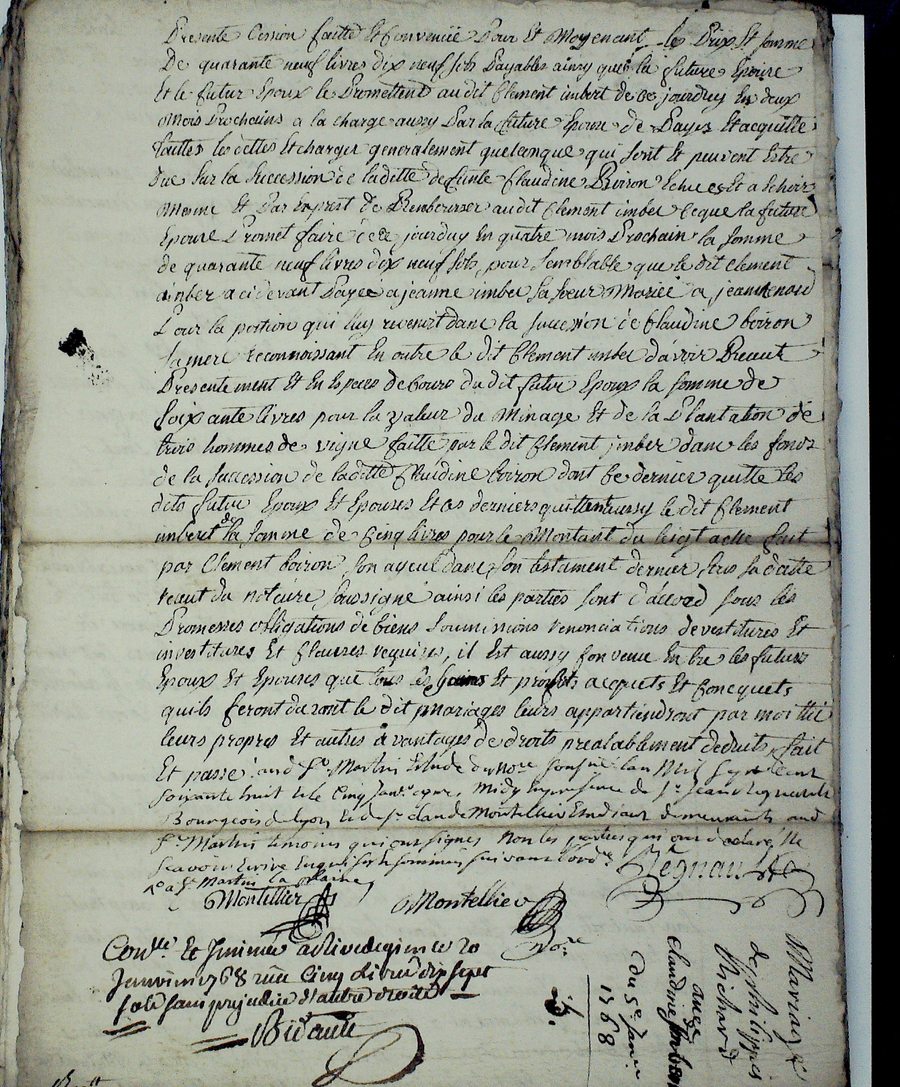 Presente Cession faitte Et Convenüe Pour Et Moyenant le Prix Et somme
De quarante neuf livres dix neuf sols Payables ainsy que la future Epouse
Et le futur Epoux le Promettent audit Clement imbert de ce jourduy En deux
Mois Prochains a la charge aussy Par la future Epouse de Payer Et acquitte
touttes les dettes Et charges generalement quelconque qui sont Et peuvent Estre
due sur la succession de laditte defunte Claudine Boiron Echues Et a Echoir
Mesme Et Par Exprest de Rembourser audit Clement imber ce que la future
Epouse Promet faire de ce jourduy En quatre mois Prochain la somme
de quarante neuf livres dix neuf sols, pour semblable que le dit Clement
imber a ci devant Payee a jeanne imber sa sœur Mariée a jean
Pour la portion qui luy revenoit dans la succession de Claudine boiron
sa mere reconnoissant En outre le dit Clement imber d'avoir Receut
Presentement Et En Especes de Cours du dit futur Epoux la somme de
soixante livres pour la valeur du Minage Et de la Plantation de
trois hommes de vigne faitte par le dit Clement imber dans les fonds
de la succession de laditte Claudine boiron dont ce dernier quitte les
dits futur Epoux Et Epouses Et ces derniers quittent aussy le dit Clement
imbert de la somme de Cinq livres pour le Montant du legt a elle fait
par Clement boiron son ayeul dans son testament dernier sous sa datte
receut du notaire soussigné ainsi les parties sont d'accord sous les
Promesses obligations de biens soumissions renonciations devestitures Et
investitures Et Clauses requises, il est aussy Convenu Entre les futurs
Epoux Et Epouses que tous les gains Et profits acquets Et Concquets
quils feront durant le dit mariages leurs appartiendront par moittié
leurs propres Et autres avantages de droits prealablement deduits, fait
Et passé audt St Martin Etude du nore sousné lan Mil sept cent
soixante huit et le Cinq janvier apr. Midy En presence de sr jean Regnault
Bourgeois de Lyon Et de sr claude Montellier Etudiant demeurants audt
St Martin temoins qui ont signes Non les parties qui ont declaré Ne
scavoir Ecrire Enquis et sommés suivant l'ordce
a St Martin la plaine
Regnault
Montellier
Montellier
Nore
Conlle Et Insinué a Rivedegier ce 20
Janvier 1768 reçu Cinq livres dix sept
sols sans prejudice d'autre droits
Bidault
Mariage
de philippes
Richard
avec
Claudine Imbert
du 5e janer
1768